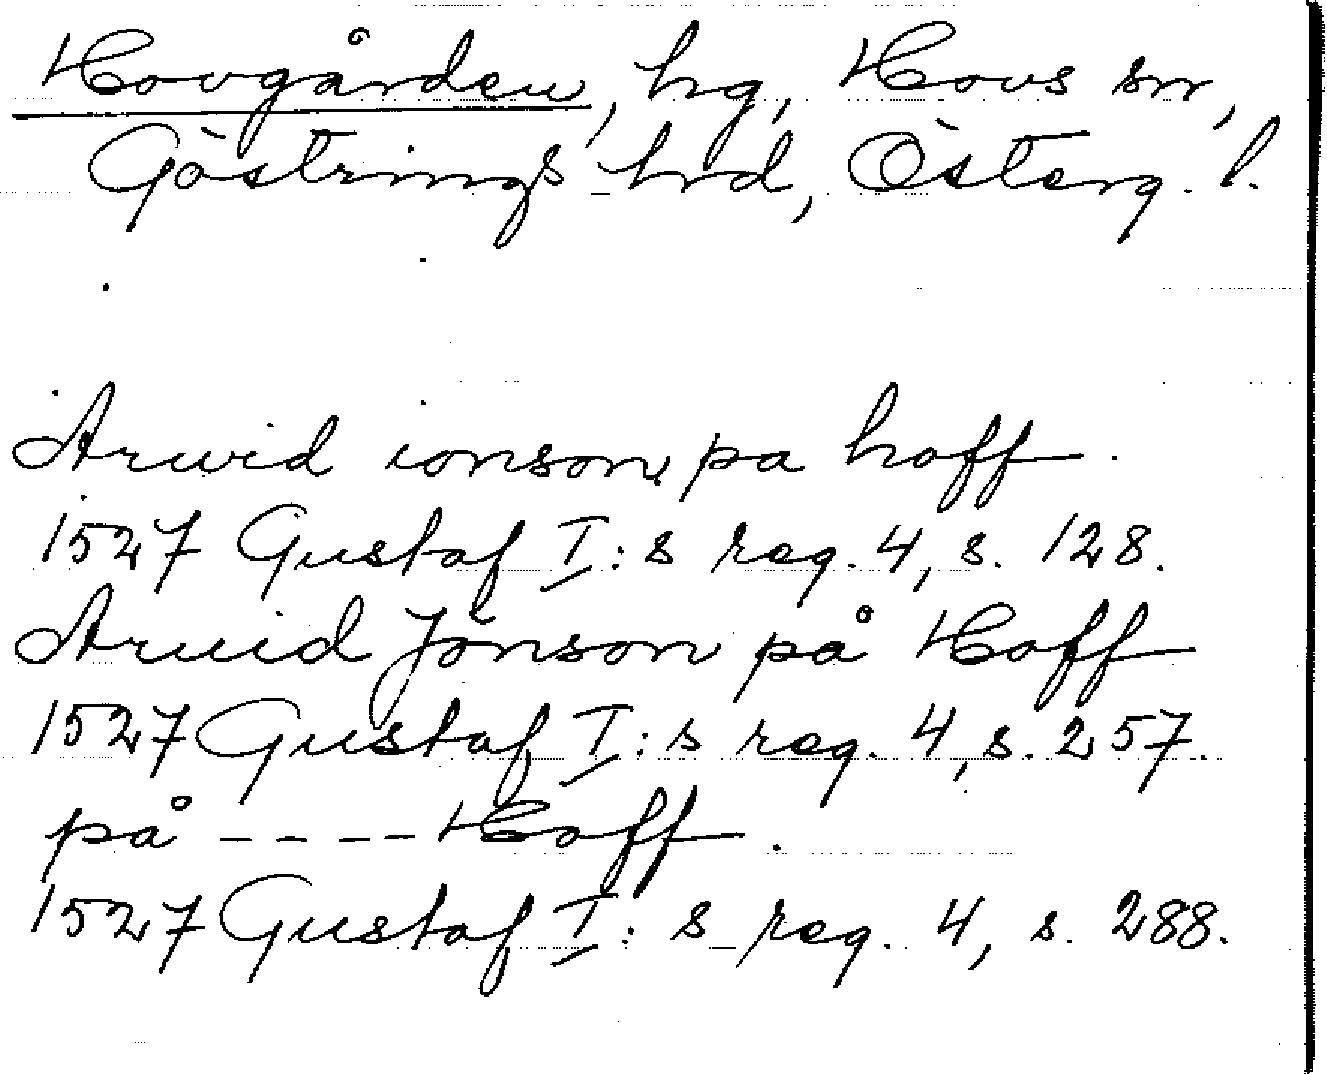 Hovgården, hg, Hovs sn,
Göstrings hrd, Österg. l.
Arwid ionson pa hoff.
1527 Gustaf I:s reg. 4, s. 128.
Arwid Jönson på Hoff
1527 Gustaf I:s reg. 4, s. 257.
på ---- Hoff.
1527 Gustaf I:s reg. 4, s. 288.